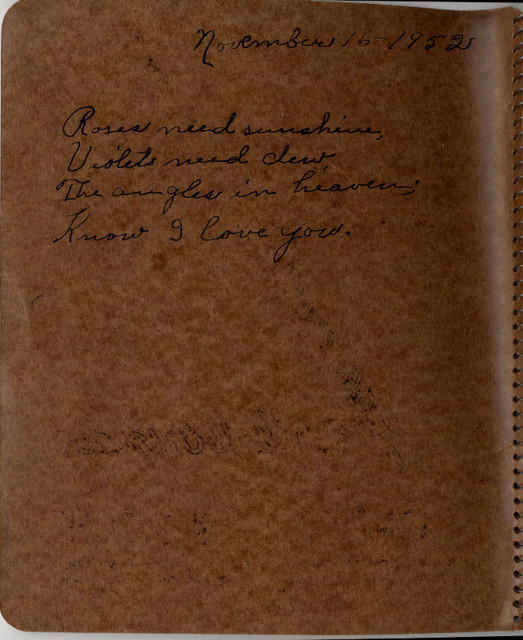 November 16-1952
Roses need sunshine,
Violets need dew
The angles in heaven,
Know I love you.